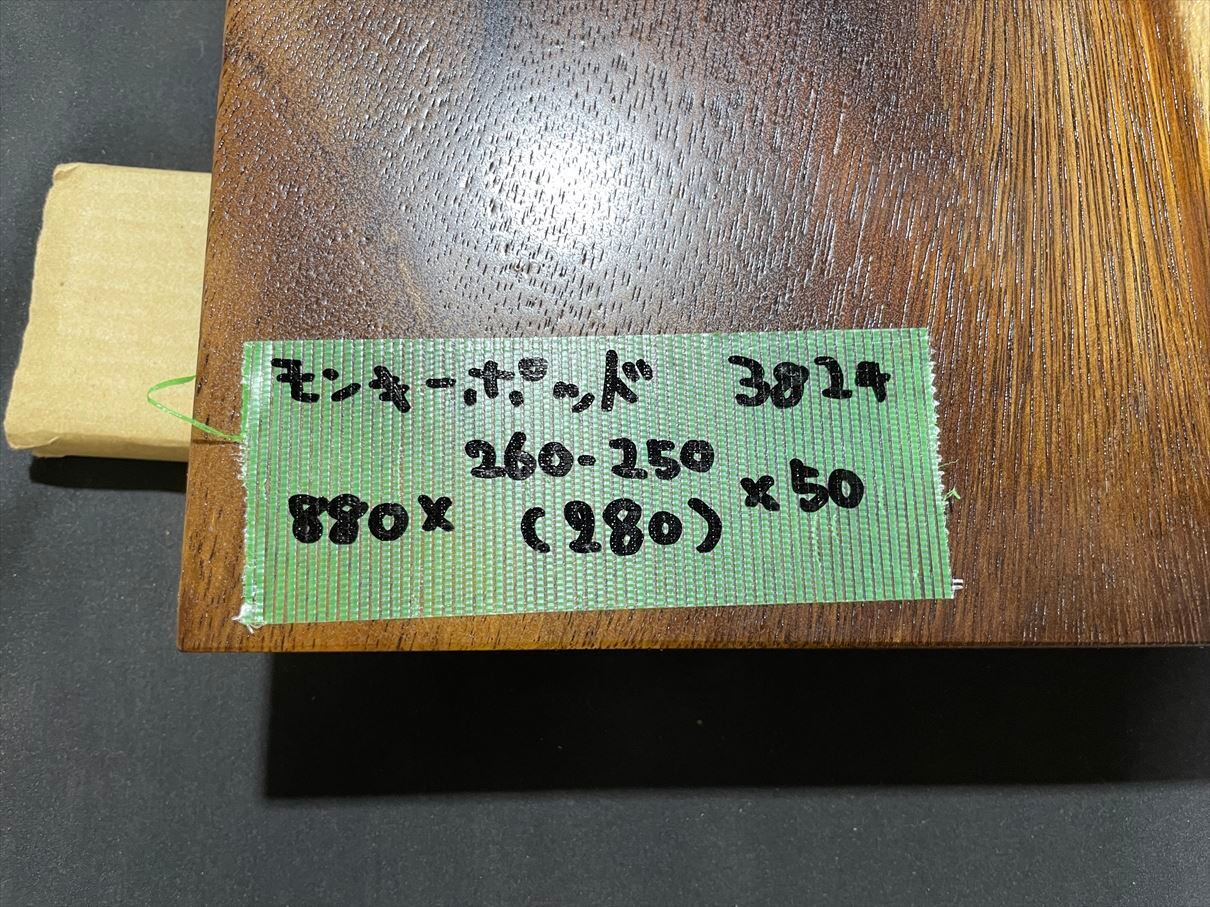 モンキーポッド 3824
260-250
880× (280) ×50